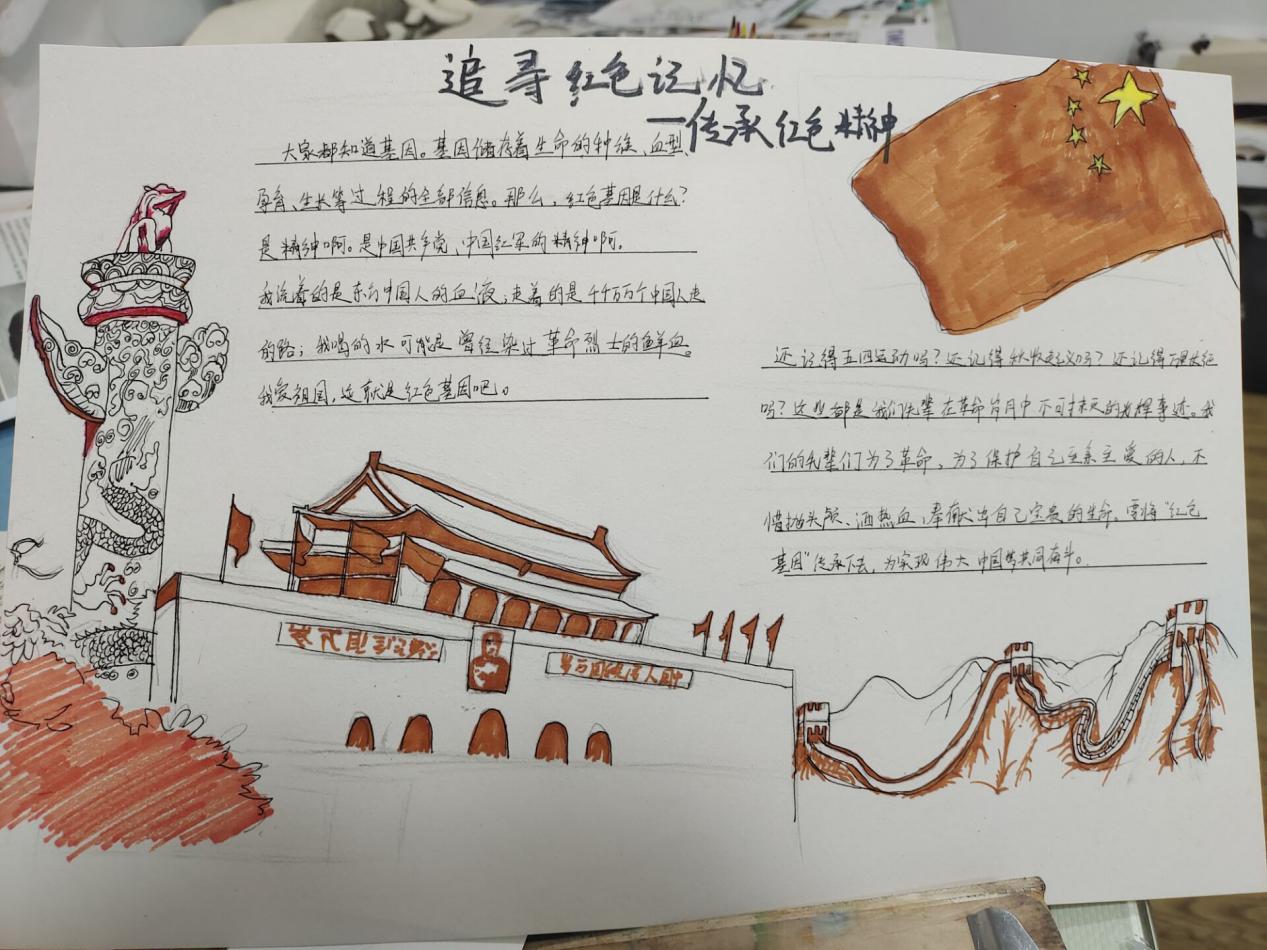 追寻红色记忆
一传承红色精神
大家都知道基因。基因储存着生命的种族、血型、
孕育、生长等过程的全部信息。那么，红色基因是什么？
是精神啊。是中国共产党、中国红军的精神啊。
我流着的是东方中国人的血液；走着的是千千万万个中国人走
的路；我喝的水可能是曾经染过革命烈士的鲜血。
我爱祖国，这就是红色基因吧。
还记得五四运动吗？还记得秋收起义吗？还记得万里长征
吗？这些都是我们先辈在革命岁月中不可抹灭的光辉事迹。我
们的先辈们为了革命、为了保护自己至亲至爱的人，不
惜抛头颅、洒热血，奉献出自己宝贵的生命，要将“红色
基因”传承下去，为实现伟大中国梦共同奋斗。